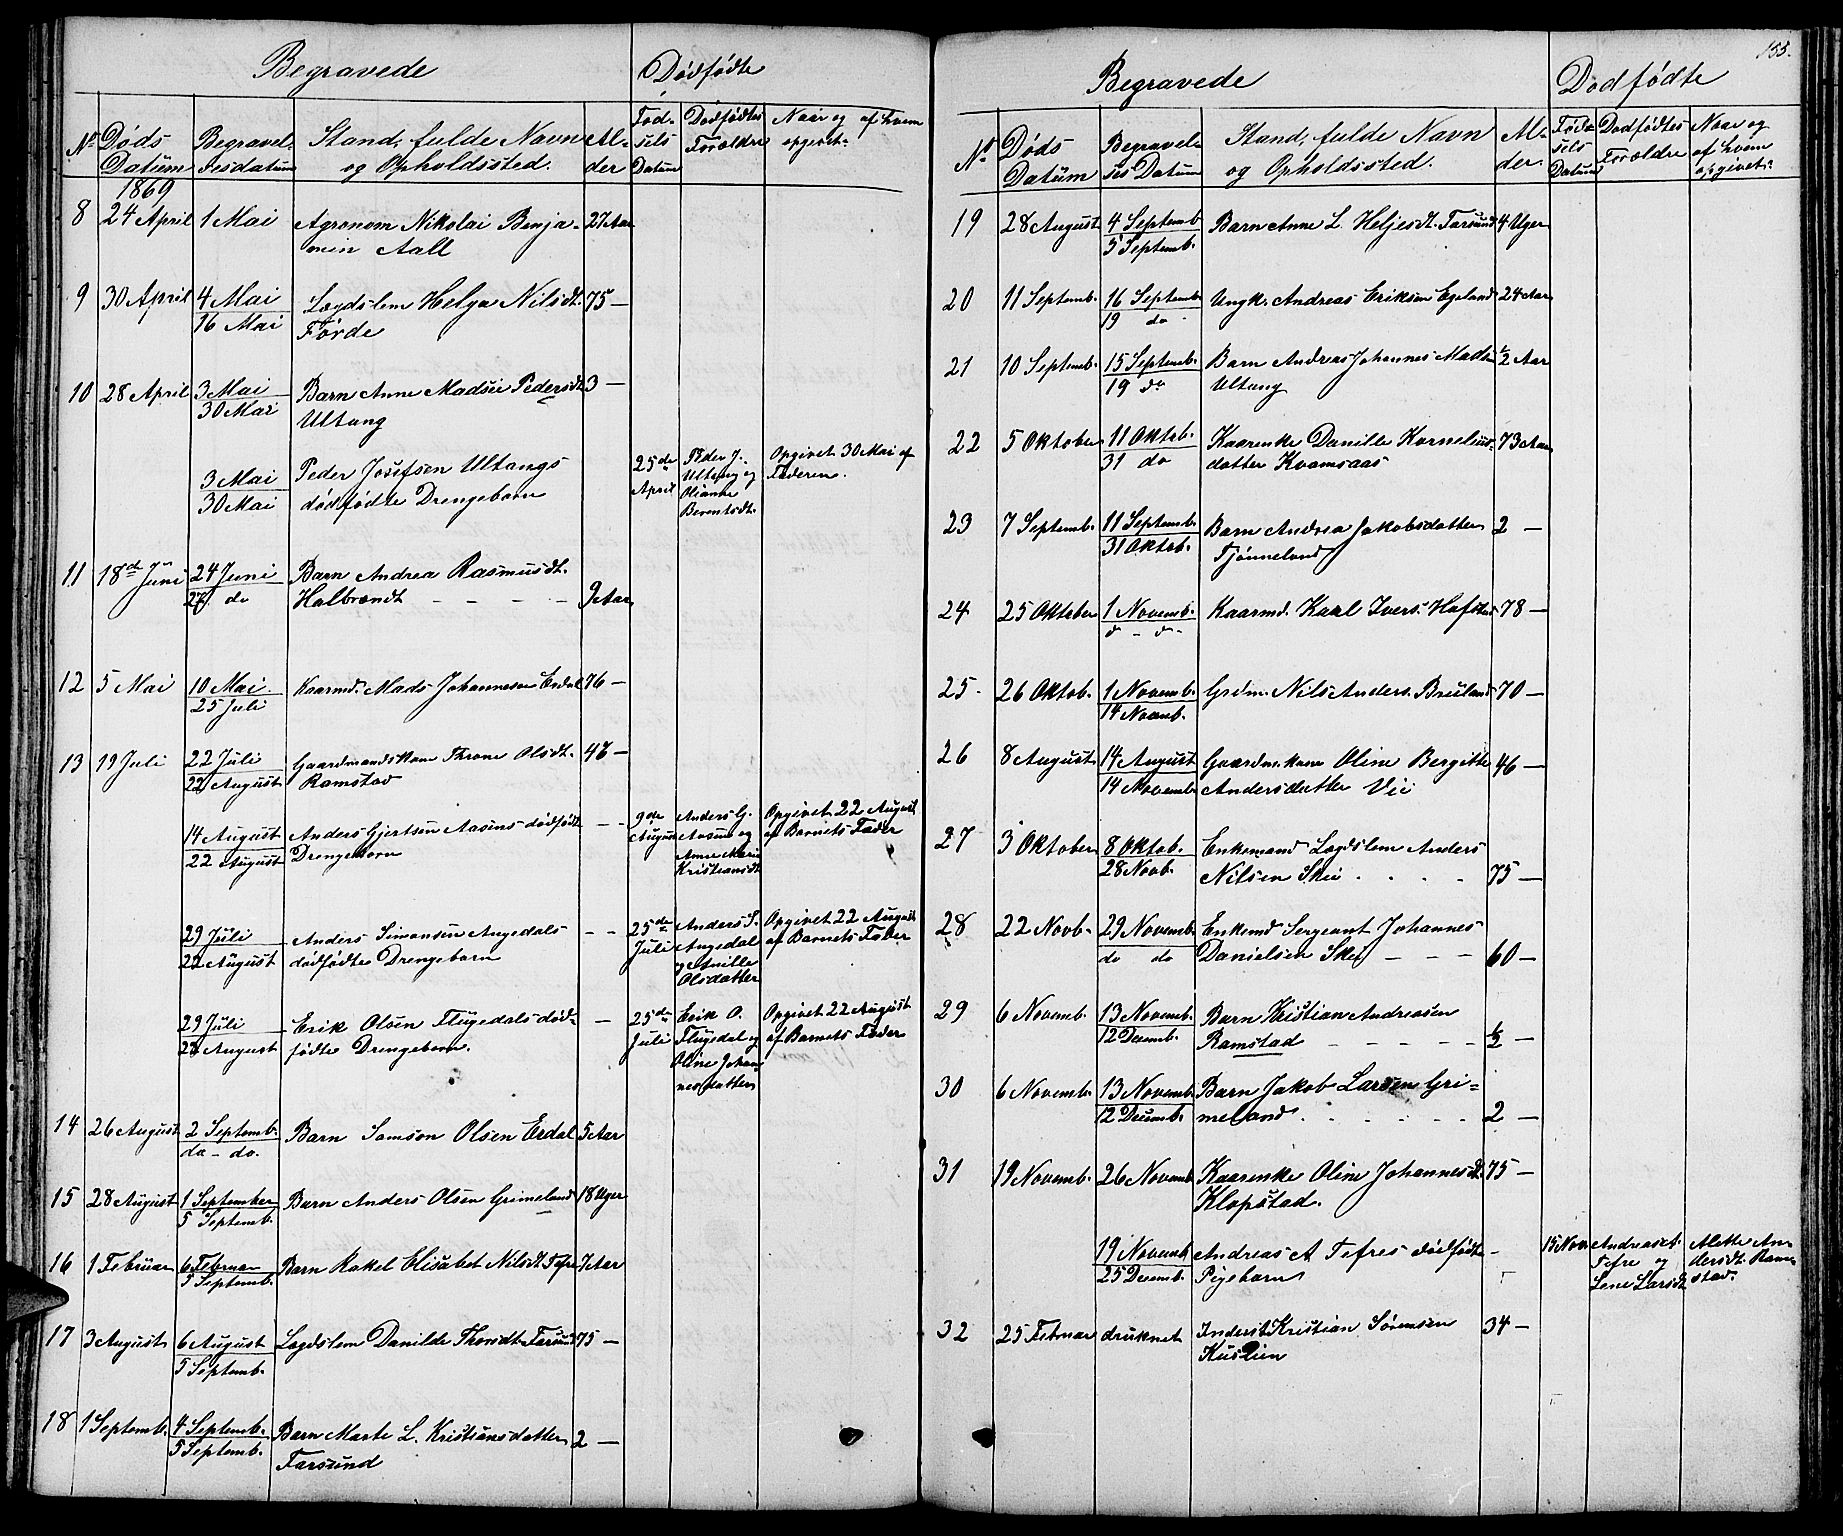 Begravede
Dødfødte
No
Døds Datum
Begravelsesdatum
Stand, fulde Navn og Opholdssted.
Alder
Fødsels Datum
Dødfødtes Forældre
Naar og af hvem opgivet.
1869
8 24 April 1 Mai Agronom Nikolai Benja- 27 Aar
min Aall
9 30 April 4 Mai Lægdslem Helga Nilsdt. 75 —
16 Mai Førde
10 28 April 3 Mai Barn Anne Madsei Pedersdt. 3 —
30 Mai Ultang
3 Mai Peder Josefsen Ultangs 25de April Peder J. Ultang og Olianne Berentsdt. Opgivet 30 Mai af Faderen.
30 Mai dødfødte Drengebarn
11 18de Juni 24 Juni Barn Andrea Rasmusdt.
27 do Halbrendt — — — — 9 Aar
12 5 Mai 10 Mai Kaarmd. Mads Johannesen Erdal 76 —
25 Juli
13 19 Juli 22 Juli Gaardmandskone Throne Olsdt. 47 —
22 August Ramstad
14 August Anders Gjertsen Aasens dødfødte — — 9de August Anders G. Aasen og Anne Marie Kristiansdt. Opgivet 22 August af Barnets Fader
22 August Drengebarn
29 Juli Anders Simonsen Angedals — — 25de Juli Anders S. Angedal og Anille Olsdatter Opgivet 22 August af Barnets Fader
22 August dødfødte Drengebarn
29 Juli Erik Olsen Flugedals død- — 25de Juli Erik O. Flugedal og Oline Johannesdatter Opgivet 22 August af Barnets Fader
22 August fødte Drengebarn.
14 26 August 2 Septemb. Barn Samson Olsen Erdal 5 Aar
do — do.
15 28 August 1 September Barn Anders Olsen Grimeland 18 Uger
5 Septemb.
16 1 Februar 6 Februar Barn Rakel Elisabet Nilsdt. Tefre 7 Aar
5 Septemb.
17 3 August 6 August Lægdslem Danilde Thorsdt. Farsund 75 —
5 Septemb.
18 1 Septemb. 4 Septemb. Barn Marte L. Kristiansdatter 2 —
5 Septemb. Farsund
155.
Begravede
Dødfødte
No
Døds Datum
Begravelses Datum
Stand, fulde Navn og Opholdssted.
Alder
Fødsels Datum
Dødfødtes Forældre
Naar og af hvem opgivet.
19 28 August 4 Septemb. Barn Anne L. Heljesdt. Farsund 4 Uger
5 Septemb.
20 11 Septemb. 16 Septemb. Ungk. Andreas Eriksen Egeland 24 Aar
19 do
21 10 Septemb. 15 Septemb. Barn Andreas Johannes Mads. ½ Aar
19 do Ultang
22 5 Oktober 11 Oktob. Kaarenke Danille Kornelius- 73 Aar
31 do datter Kvamsaas
23 7 Septemb. 11 Septemb. Barn Andrea Jakobsdatter 2 —
31 Oktob. Tjønneland
24 25 Oktober 1 Novemb. Kaarmd. Karl Ivers. Hofstad 78 —
d — o —
25. 26 Oktob. 1 Novemb. Grdm. Nils Anders. Breiland 70 —
14 Novemb.
26 8 August 14 August Gaardm.kone Oline Bergitte 46 —
14 Novemb. Andersdatter Vie
27 3 Oktober 8 Oktob. Enkemand Lægdslem Anders
28 Novb. Nilsen Skei . . . . 75 —
28 22 Novb. 29 Novemb. Enkemd Sergeant Johannes
do do Danielsen Skei — — — 60 —
29 6 Novemb. 13 Novemb. Barn Kristian Andreasen
12 Decemb. Ramstad — — — — — ½ —
30 6 Novemb. 13 Novemb. Barn Jakob Larsen Gri-
12 Decemb. meland. . . . . . 2 —
31 19 Novemb. 26 Novemb. Kaarenke Oline Johannesdt. 75 —
Klopstad.
19 Novemb. Andreas A Tefres dødfødte — 15 Nov. Andreas A. Tefre og Lene Larsdt. Mette Andersdt. Ramstad.
25 Decemb. Pigebarn
32 25 Februar druknet Inderst Kristian Sørensen 34 —
Kuslien